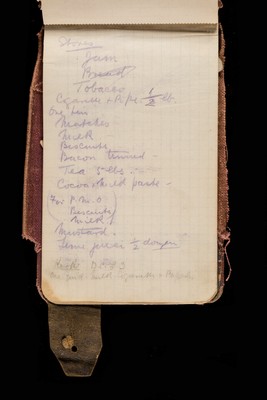 Stores
Jam
Bread
Tobacco
Cigarettes + Pipe 1/2 lb.
One tin
Matches
Milk
Biscuits
Bacon tinned
Tea 5 lbs
Cocoa + milk paste -
For P.M.O
Biscuits
Milk
Mustard.
Lime juice 1/2 dozen